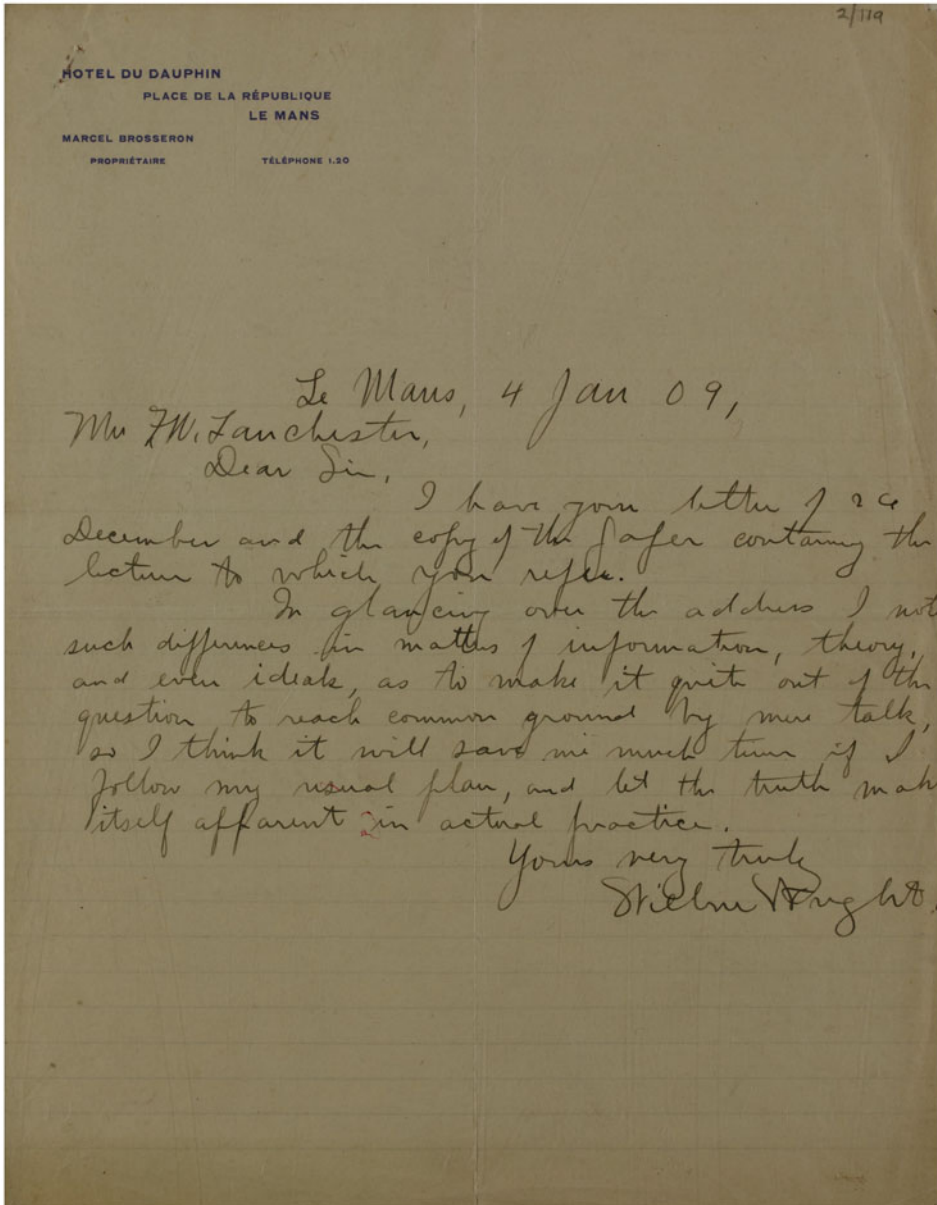 2/119
HOTEL DU DAUPHIN
PLACE DE LA RÉPUBLIQUE
LE MANS
MARCEL BROSSERON
PROPRIÉTAIRE TÉLÉPHONE 1.20
Le Mans, 4 Jan 09,
Mr F.W. Lanchester,
Dear Sir,
I have your letter of
December and the copy of the paper containing the
lecture to which you refer.
In glancing over the address I note
such differences in matters of information, theory,
and even ideals, as to make it quite out of the
question to reach common ground by mere talk,
so I think it will save me much time if I
follow my usual plan, and let the truth make
itself apparent in actual practice.
Yours very truly
Wilbur Wright.